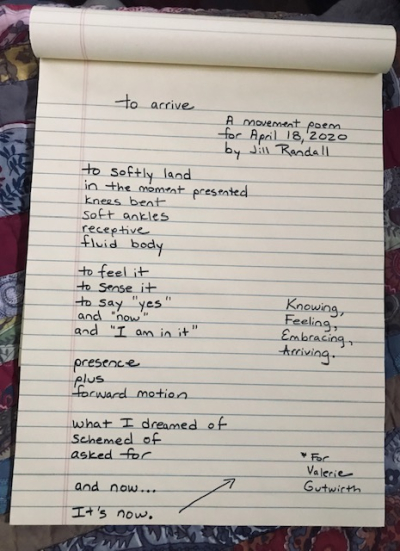 to arrive
A movement poem
for April 18, 2020
by Jill Randall
to softly land
in the moment presented
knees bent
soft ankles
receptive
fluid body
to feel it
to sense it
to say "yes"
and "now"
and "I am in it"
Knowing,
Feeling,
Embracing,
Arriving.
presence
plus
forward motion
what I dreamed of
schemed of
asked for
and now...
It's now.
*For
Valerie
Gutwirth